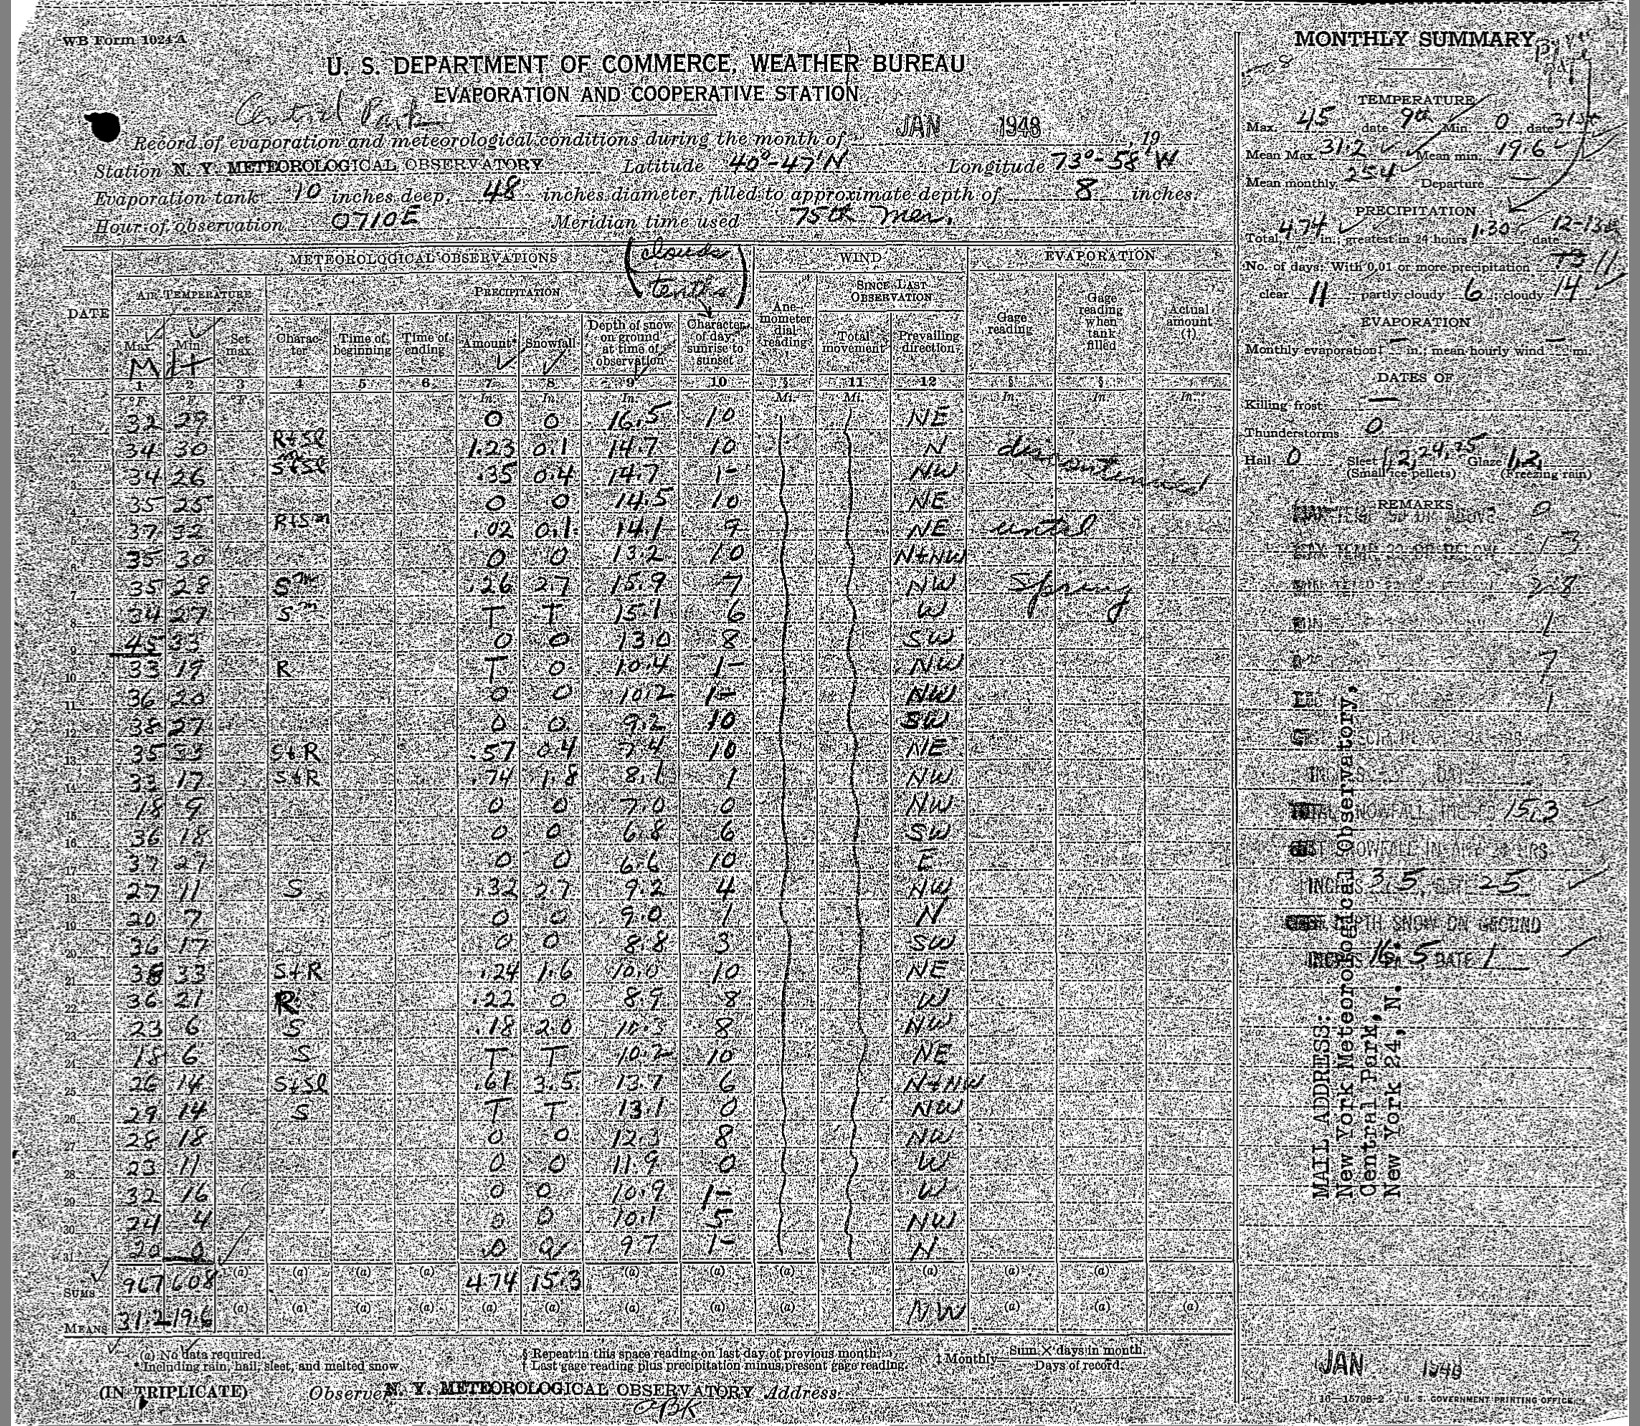 WB Form 1024A
U. S. DEPARTMENT OF COMMERCE, WEATHER BUREAU
EVAPORATION AND COOPERATIVE STATION
Central Park
Record of evaporation and meteorological conditions during the month of JAN 1948, 19
Station N. Y. METEOROLOGICAL OBSERVATORY Latitude 40°-47'N Longitude 73°-58'W
Evaporation tank 10 inches deep, 48 inches diameter, filled to approximate depth of 8 inches.
Hour of observation 0710E Meridian time used 75th mer.
METEOROLOGICAL OBSERVATIONS (clouds tenths) WIND EVAPORATION
DATE AIR TEMPERATURE PRECIPITATION SINCE LAST OBSERVATION
Max. Min. Set max. Character Time of beginning Time of ending Amount* Snowfall Depth of snow on ground at time of observation Character of day, sunrise to sunset Anemometer dial reading Total movement Prevailing direction Gage reading Gage reading when tank filled Actual amount (†)
1 2 3 4 5 6 7 8 9 10 § 11 12 § §
°F °F °F In. In. In. Mi. Mi. In. In. In.
1 32 29 0 0 16.5 10 NE
2 34 30 R+Sl 1.23 0.1 14.7 10 N discontinued
3 34 26 S+Sl .35 0.4 14.7 1- NW
4 35 25 0 0 14.5 10 NE
5 37 32 R+S .02 0.1 14.1 9 NE until
6 35 30 0 0 13.2 10 N+NW
7 35 28 S .26 2.7 15.9 7 NW Spring
8 34 27 S T T 15.1 6 W
9 45 33 0 0 13.0 8 SW
10 33 19 R T 0 10.4 1- NW
11 36 20 0 0 10.2 1- NW
12 38 27 0 0 9.2 10 SW
13 35 33 S+R .57 0.4 7.4 10 NE
14 33 17 S+R .74 1.8 8.1 1 NW
15 18 9 0 0 7.0 0 NW
16 36 18 0 0 6.8 6 SW
17 37 27 0 0 6.6 10 E
18 27 11 S .32 2.7 9.2 4 NW
19 20 7 0 0 9.0 1 N
20 36 17 0 0 8.8 3 SW
21 38 33 S+R .24 1.6 10.0 10 NE
22 36 21 R .22 0 8.9 8 W
23 23 6 S .18 2.0 10.3 8 NW
24 18 6 S T T 10.2 10 NE
25 26 14 S+Sl .61 3.5 13.7 6 N+NW
26 29 14 S T T 13.1 0 NW
27 28 18 0 0 12.3 8 NW
28 23 11 0 0 11.9 0 W
29 32 16 0 0 10.9 1- W
30 24 4 0 0 10.1 5 NW
31 20 0 0 0 9.7 1- N
SUMS 967 608 (a) (a) (a) (a) 4.74 15.3 (a) (a) (a) (a) (a) (a)
MEANS 31.2 19.6 (a) (a) (a) (a) (a) (a) (a) (a) NW (a) (a) (a)
(a) No data required.
*Including rain, hail, sleet, and melted snow.
§ Repeat in this space reading on last day of previous month.
† Last gage reading plus precipitation minus present gage reading.
‡ Monthly Sum × days in month.
Days of record.
(IN TRIPLICATE) Observer N. Y. METEOROLOGICAL OBSERVATORY Address
MONTHLY SUMMARY
TEMPERATURE
Max. 45 date 9th Min. 0 date 31st
Mean Max. 31.2 Mean min. 19.6
Mean monthly 25.4 Departure —
PRECIPITATION
Total, 4.74 in.; greatest in 24 hours 1.30; date 12-13th
No. of days: With 0.01 or more precipitation 11
clear 11; partly cloudy 6; cloudy 14
EVAPORATION
Monthly evaporation‡ — in.; mean hourly wind — mi.
DATES OF
Killing frost —
Thunderstorms 0
Hail 0 Sleet 1,2,24,25 Glaze 1,2
(Small ice pellets) (Freezing rain)
REMARKS
0
MAX TEMP 32 OR BELOW 13
28
1
7
1
TOTAL SNOWFALL, INCHES 15.3
GST SNOWFALL IN ANY 24 HRS
INCHES 3.5, DATE 25
DEPTH SNOW ON GROUND
INCHES 16.5 DATE 1
MAIL ADDRESS:
New York Meteorological Observatory,
Central Park,
New York 24, N.
JAN 1948
16—15708-2 U. S. GOVERNMENT PRINTING OFFICE